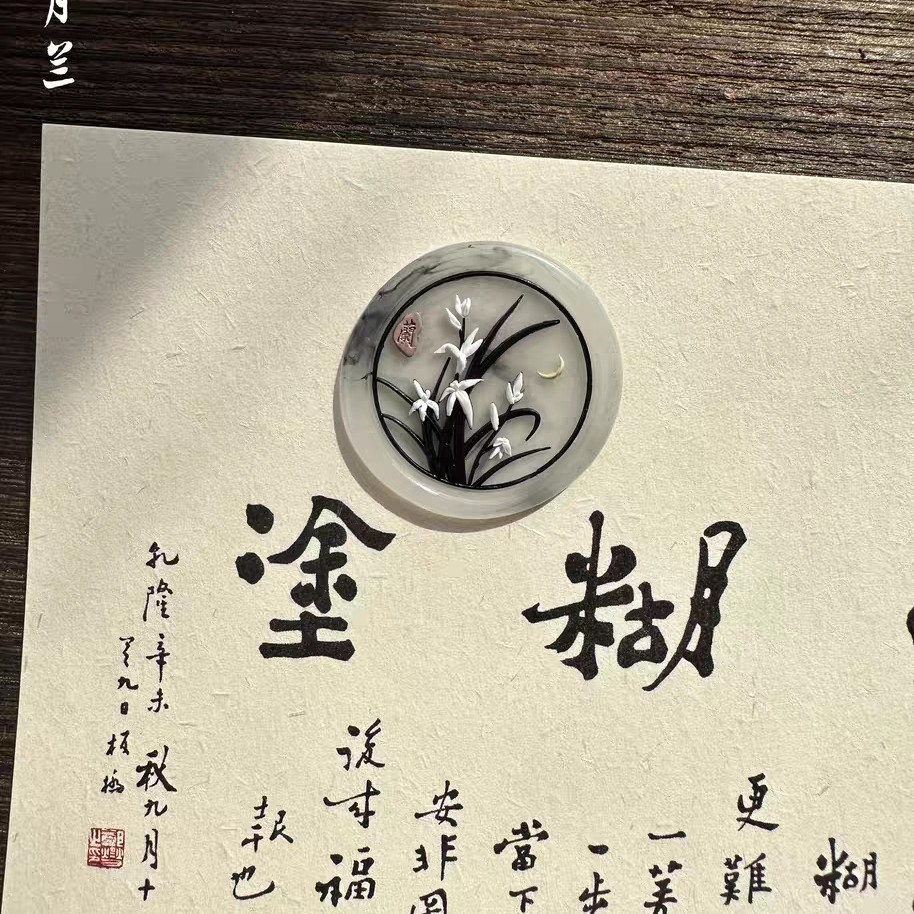 月兰
蘭
糊塗
糊
更難
一著
一步
當下
安非圖
後来福
報也
乾隆辛未秋九月十
九日板橋